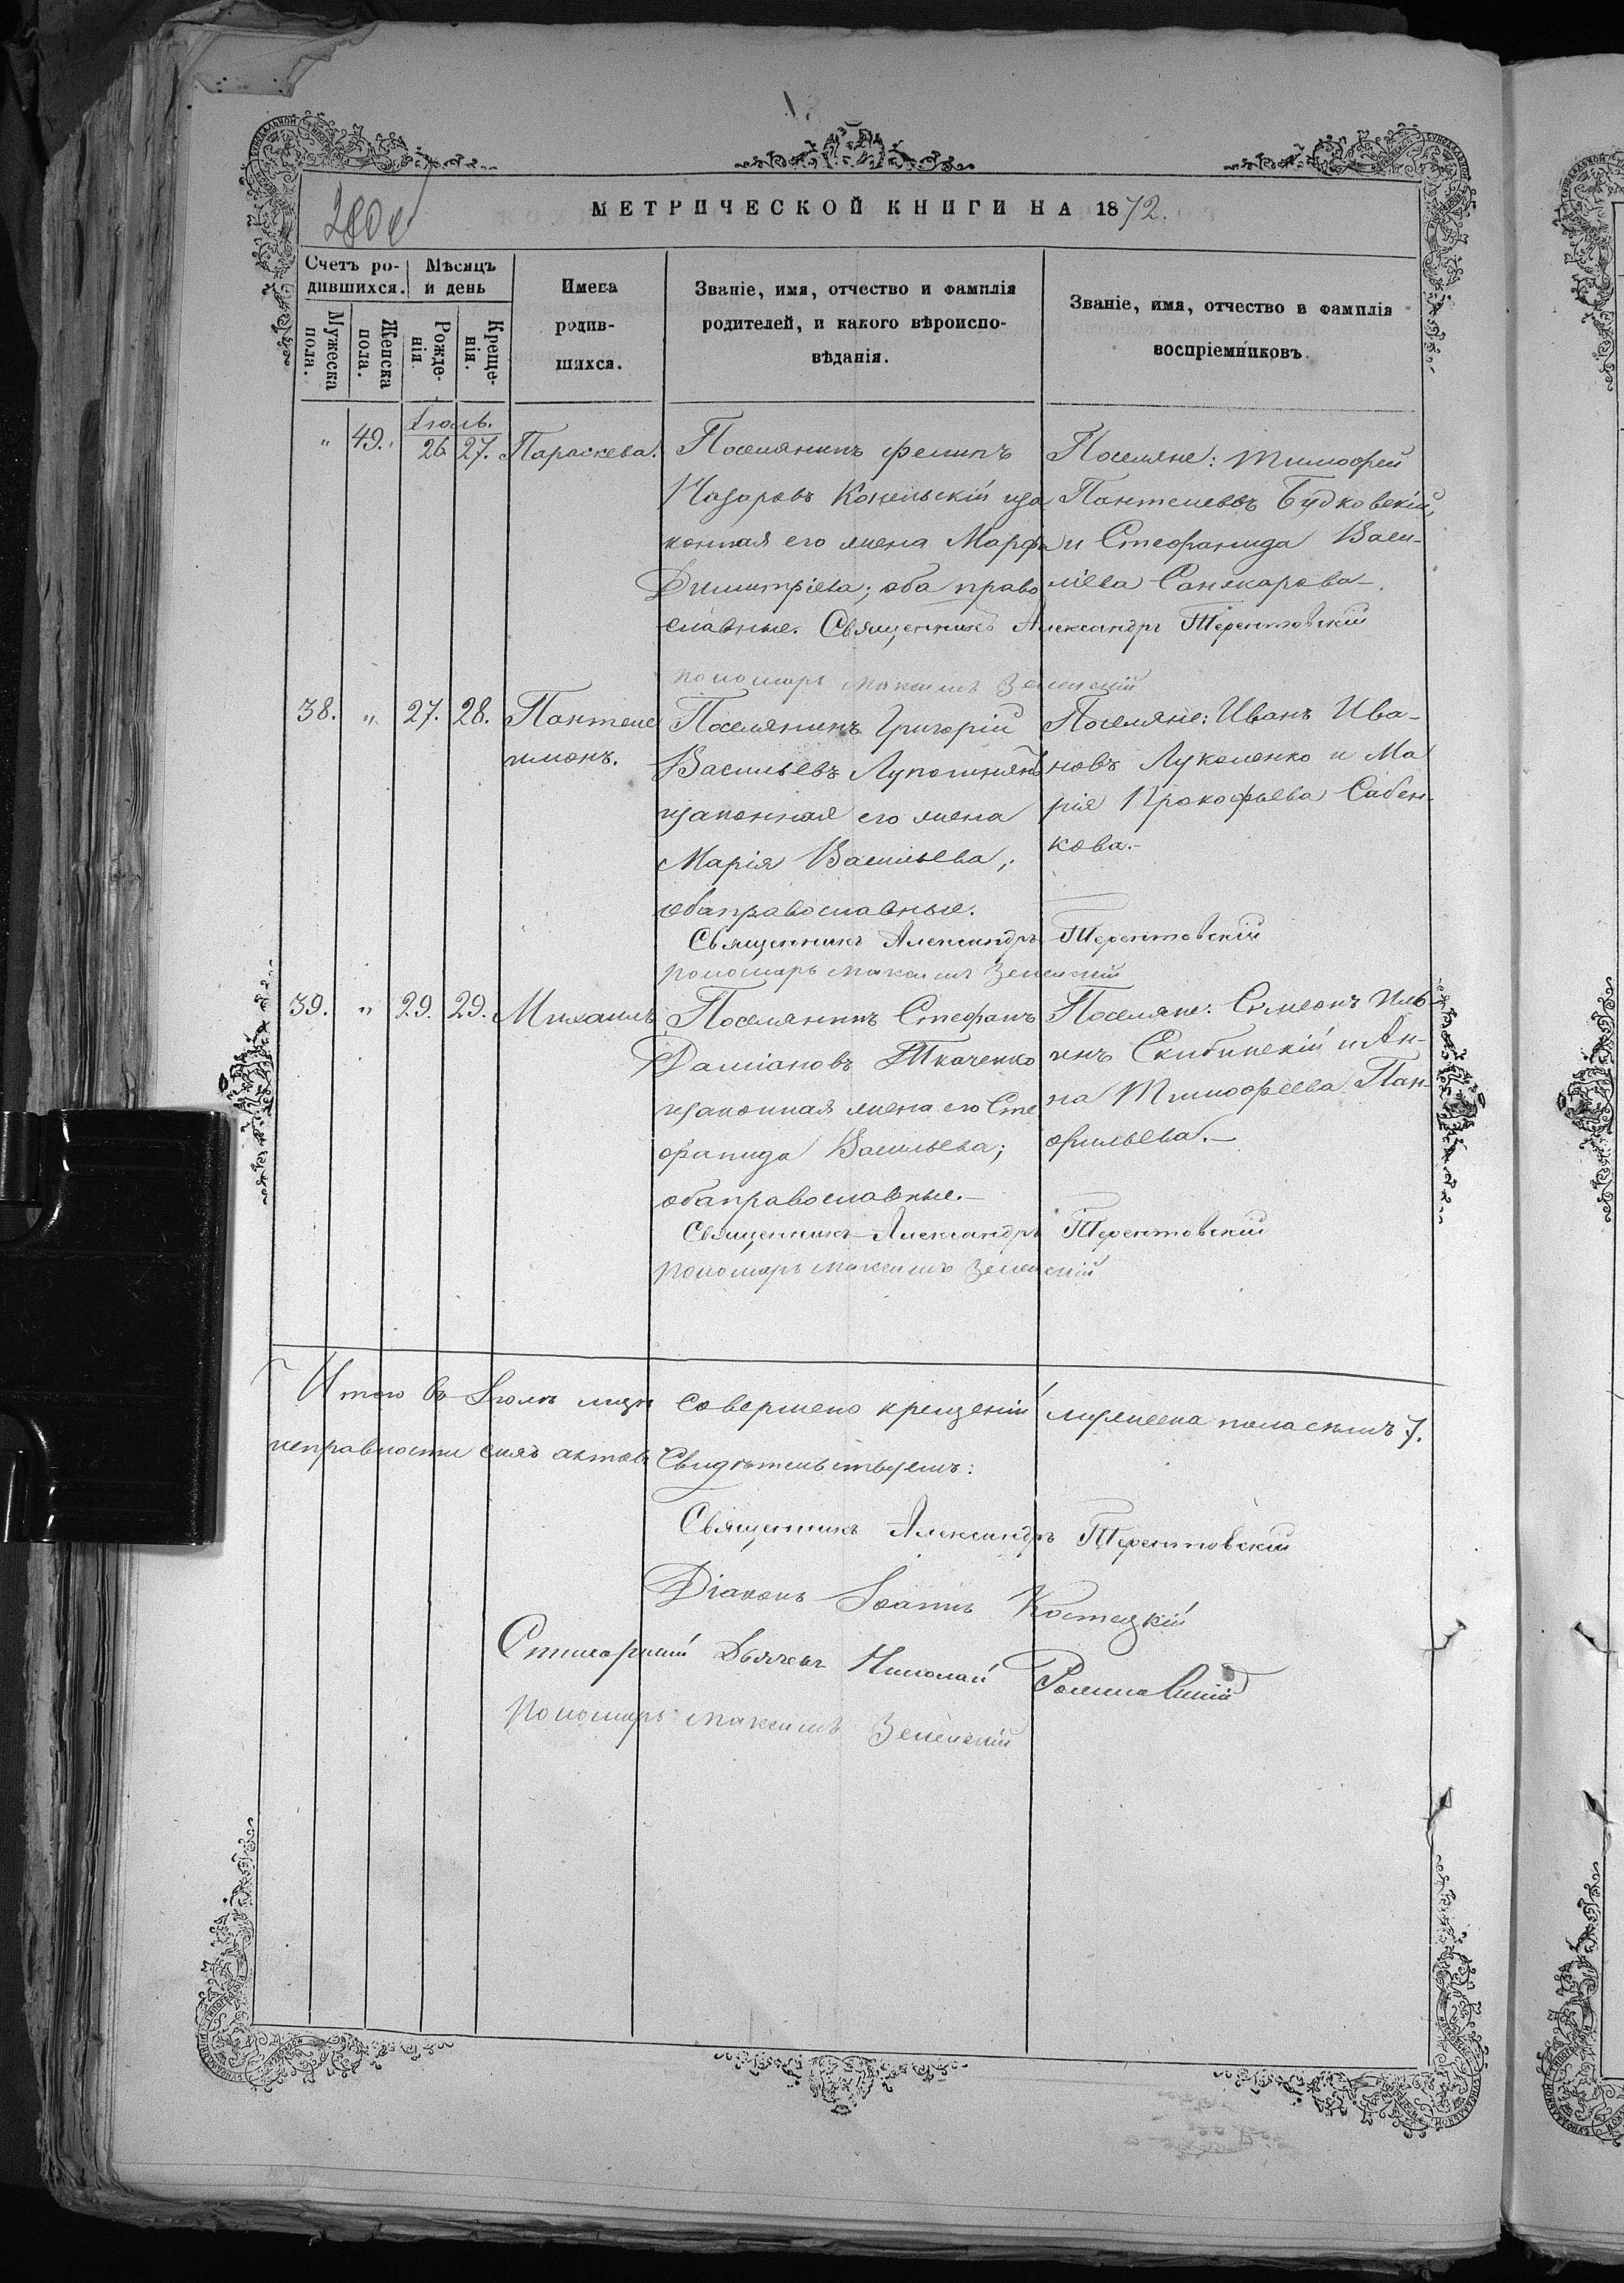 МЕТРИЧЕСКОЙ КНИГИ НА 1872.
Счетъ ро-
дившихся.
Мѣсяцъ
и день
Имена
родив-
шихся.
Званіе, имя, отчество и фамилія
родителей, и какого вѣроиспо-
вѣданія.
Званіе, имя, отчество и фамилія
воспріемниковъ.
Мужеска
пола.
Женска
пола.
Рожде-
нія.
Креще-
нія.
Іюль.
" 49. 26. 27. Параскева.
Поселянинъ Филипъ
Назаровъ Конельскій иза
конная его жена Марфа
Димитріева; оба право
славные. Священникъ Александръ Терентовскій
пономарь Максимъ Зеленскій
Поселяне: Тимофей
Пантелеевъ Будковскій,
и Стефанида Васи-
ліева Санжарова-.
38. " 27. 28. Пантеле
имонъ.
Поселянинъ Григорій
Васильевъ
изаконная его жена
Марія Васильева;
обаправославные.
Священникъ Александръ Терентовскій
пономарь Максимъ Зеленскій
Поселяне: Иванъ Ива-
новъ Луколенко и Ма
рія Прокофьева Сабен-
кова.-
39. " 29. 29. Михаилъ
Поселянинъ Стефанъ
Даміановъ Ткаченко
изаконная жена его Сте
фанида Васильева;
обаправославные.-
Священникъ Александръ Терентовскій
пономарь Максимъ Зеленскій
Поселяне: Симеонъ Иль-
инъ Скибинскій и Ан-
на Тимофеева Пан-
фильева.-
Итого въ Іюлѣ мцѣ совершено крещеній мужеска пола семь 7.
исправности сихъ актовъ Свидѣтельствуемъ:
Священникъ Александръ Терентовскій
Діаконъ Іоаннъ Костецкій
Стихарный Дьячекъ Николай
Пономарь Максимъ Зеленскій